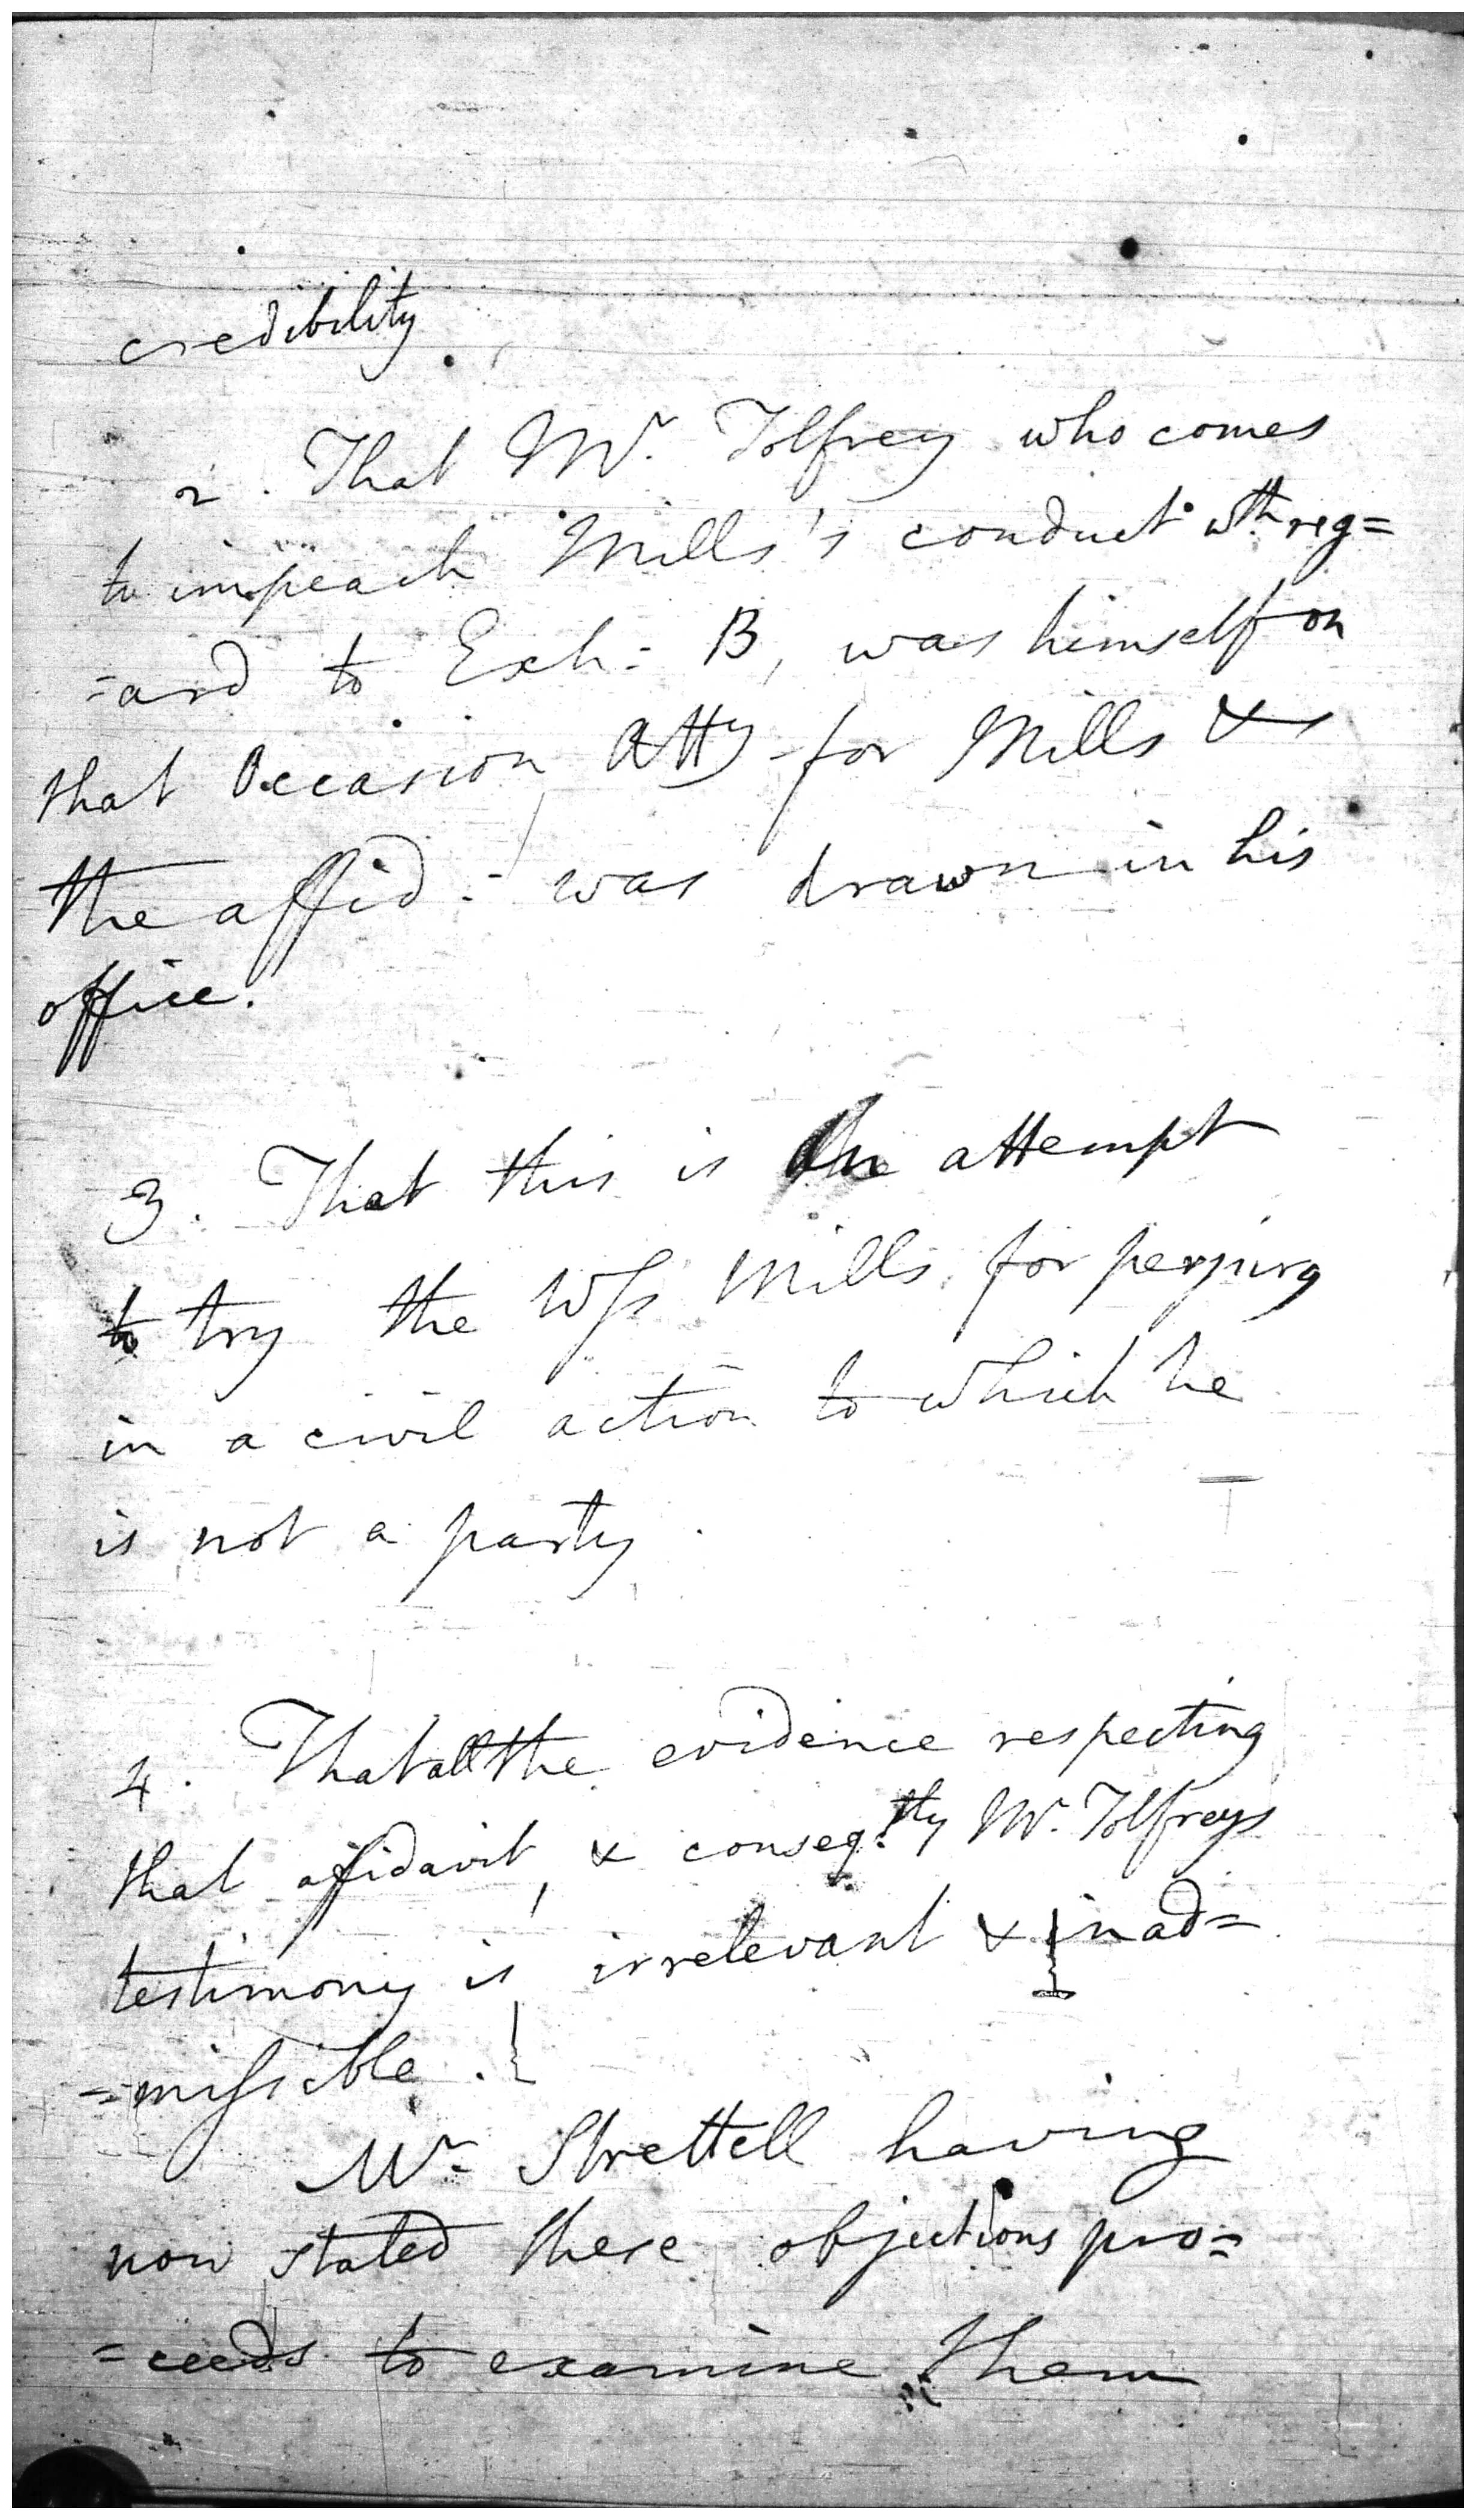 credibility.
2. That Mr. Tolfrey who comes
to impeach Mills's conduct wth. reg=
=ard to Exh: B, was himself on
that Occasion Atty for Mills &
the affid: was drawn in his
office.
3. That this is an attempt
to try the Wss Mills for perjury
in a civil action to which he
is not a party.
4. That all the evidence respecting
that affidavit, & conseq.tly Mr. Tolfreys
testimony is irrelevant & inad=
=missible.
Mr. Strettell having
now stated these objections pro=
=ceeds to examine them